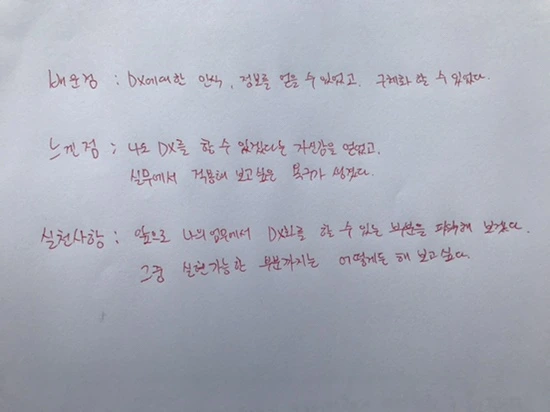 배운점 : DX에대한 인식, 정보를 얻을 수 있었고, 구체화 할 수 있었다.
느낀점 : 나도 DX를 할 수 있겠다는 자신감을 얻었고,
실무에서 적용해 보고싶은 욕구가 생겼다.
실천사항 : 앞으로 나의 업무에서 DX화를 할 수 있는 부분을 파악해 보겠다.
그중 실현가능한 부분까지는 어떻게든 해 보고싶다.